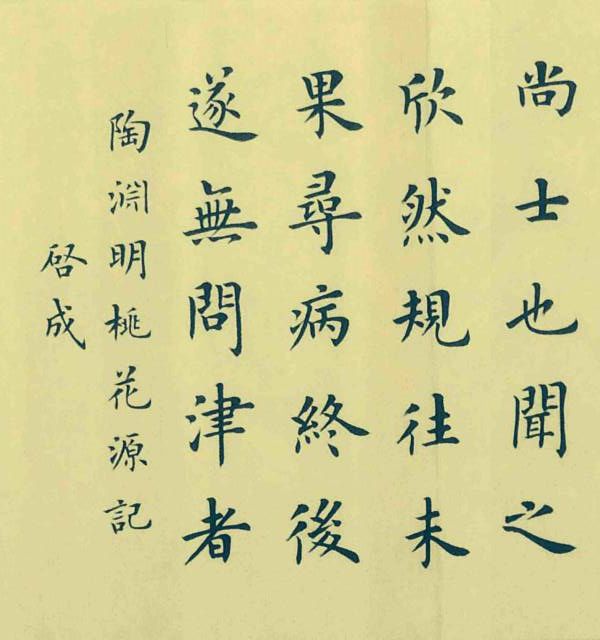 尚士也聞之
欣然規往未
果尋病終後
遂無問津者
陶淵明桃花源記
啓成